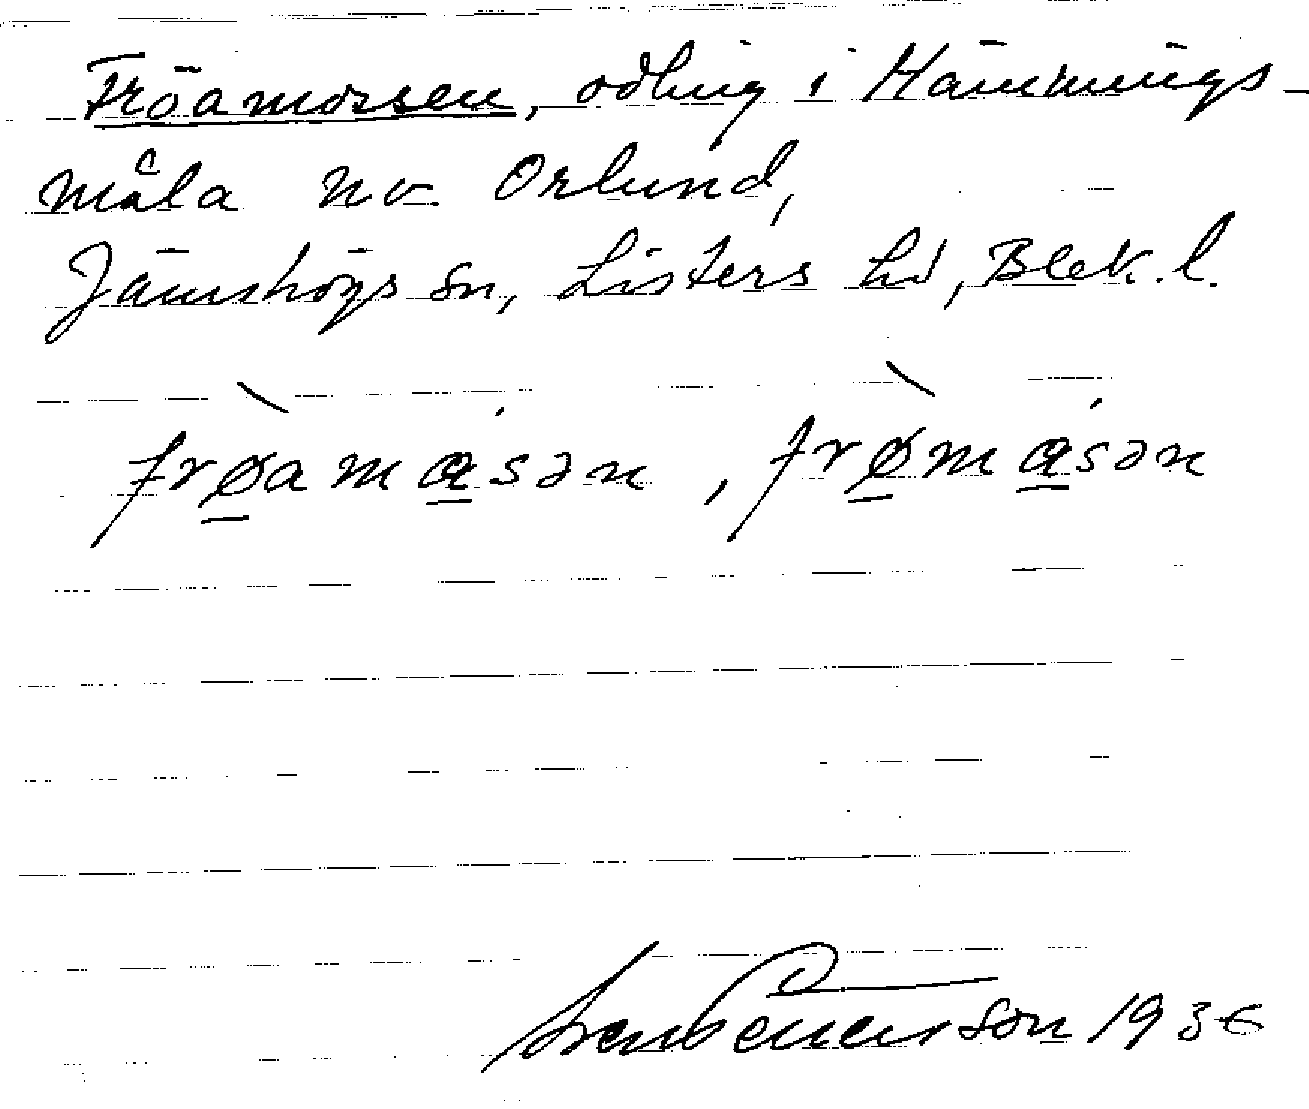 Fröamossen, odling i Hämmings-
måla no Orlund,
Jämshögs sn, Listers hd, Blek. l.
frø̱̀amɑ̱́sən, frø̱̀mɑ̱́sən
1936